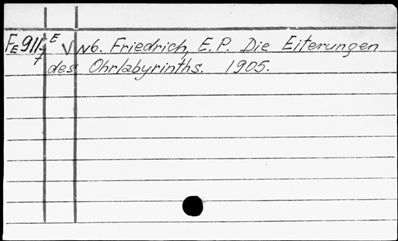 Fe 911 E V N6. Friedrich, E.P. Die Eiterungen
des Ohrlabyrinths. 1905.